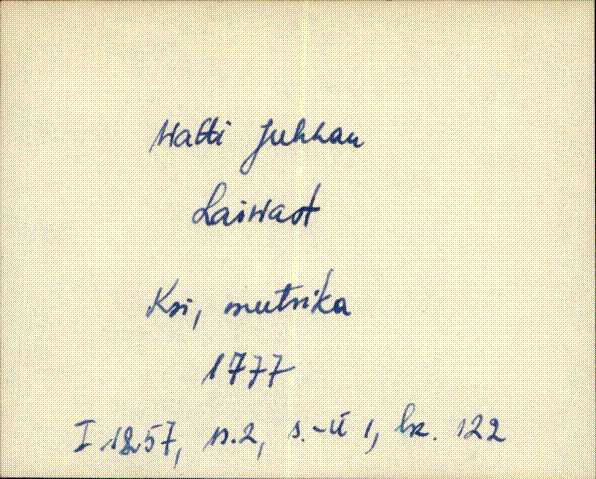 Watti Juhhan
Laiwast
Ksi, mutrika
1777
I 1257, n.2, s.-ü 1, lk. 122